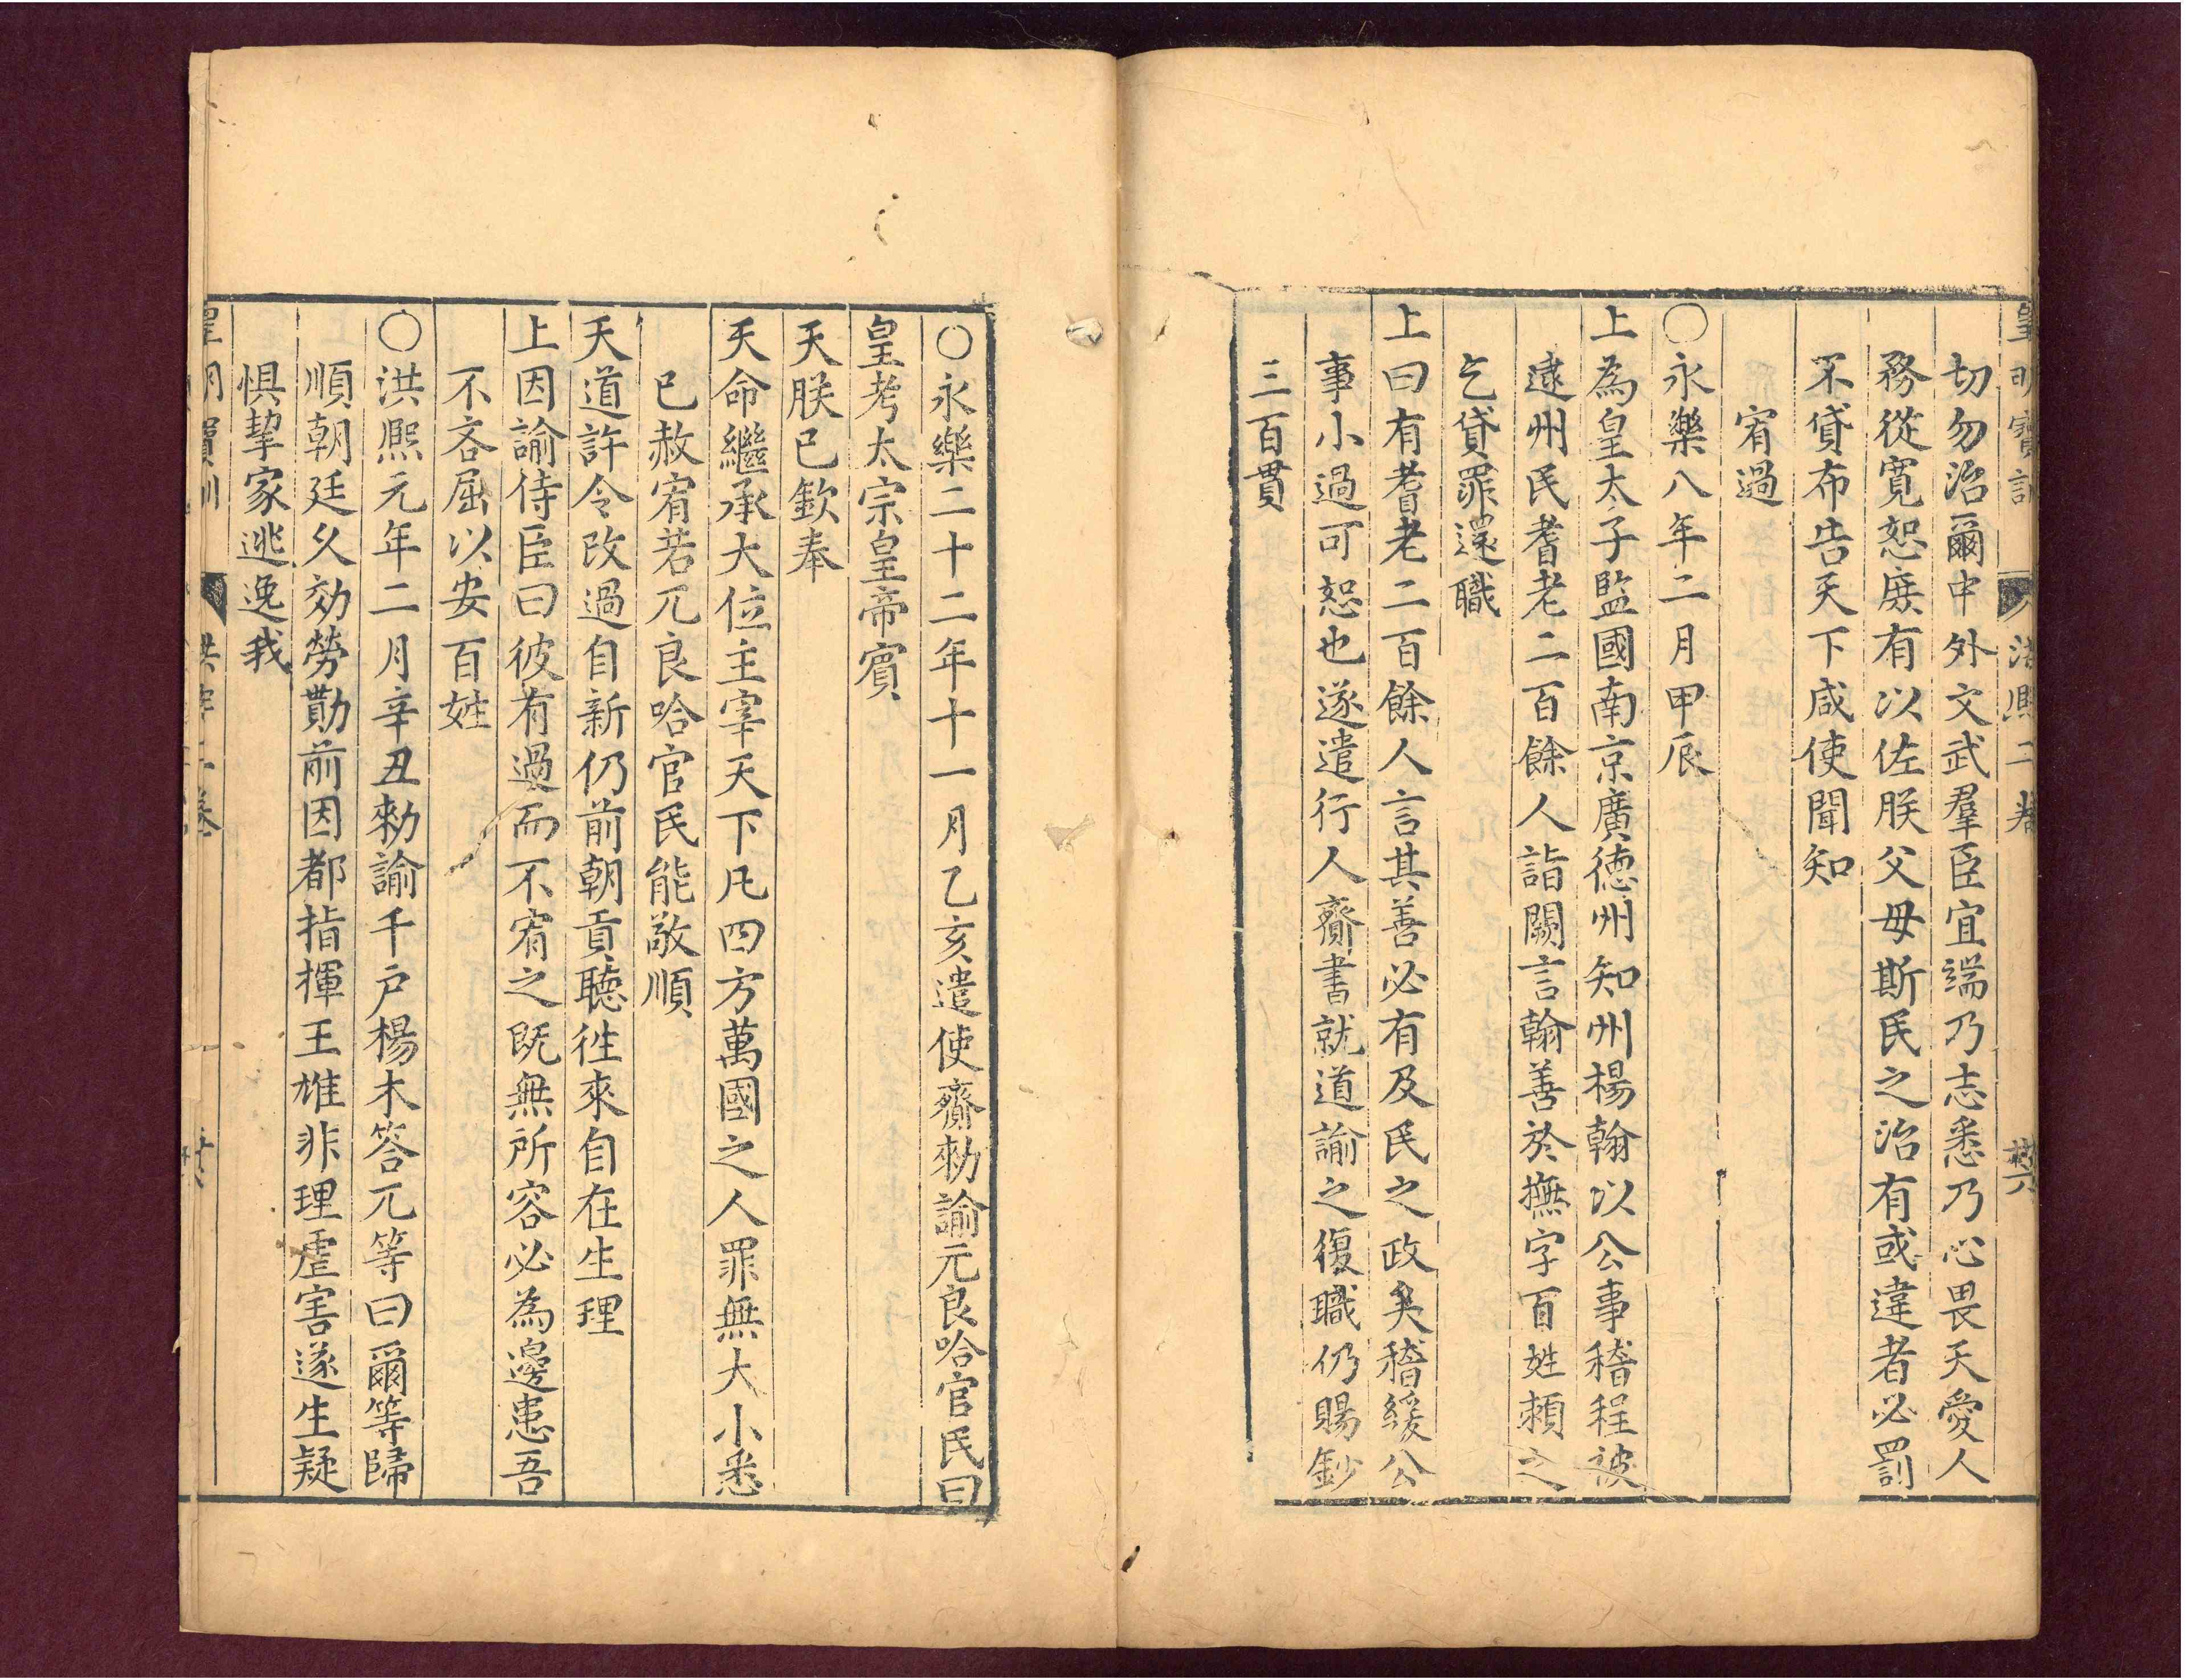 皇明寶訓　洪熙二卷
切勿治爾中外文武羣臣宜端乃志悉乃心畏天愛人
務從寬恕庶有以佐朕父母斯民之治有或違者必罰
不貸布告天下咸使聞知
宥過
○永樂八年二月甲辰
上為皇太子監國南京廣德州知州楊翰以公事稽程被
逮州民耆老二百餘人詣闕言翰善於撫字百姓賴之
乞貸罪還職
上曰有耆老二百餘人言其善必有及民之政矣稽緩公
事小過可恕也遂遣行人齎書就道諭之復職仍賜鈔
三百貫
○永樂二十二年十一月乙亥遣使齎勑諭元良哈官民曰
皇考太宗皇帝賓
天朕已欽奉
天命繼承大位主宰天下凡四方萬國之人罪無大小悉
已赦宥若兀良哈官民能敬順
天道許令改過自新仍前朝貢聽徃來自在生理
上因諭侍臣曰彼有過而不宥之既無所容必為邊患吾
不吝屈以安百姓
○洪熙元年二月辛丑勑諭千户楊木答兀等曰爾等歸
順朝廷久効勞勩前因都指揮王雄非理虐害遂生疑
懼挈家逃逸我
皇明寶訓